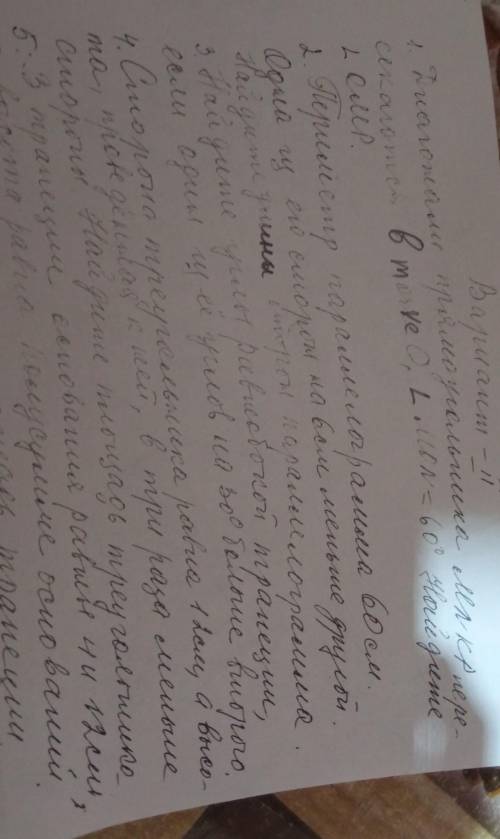 Вариант - II
1. Диагонали прямоугольника МПКР пере-
секаются в точке О, ∠ МОП = 60° Найдите
∠ ОМР.
2. Периметр параллелограмма 60 см.
Одна из его сторон на 6см меньше другой.
Найдите длины сторон параллелограмма.
3. Найдите углы равнобокой трапеции,
если один из её углов на 30° больше второго.
4. Сторона треугольника равна 12см, а высо-
та, проведённая к ней, в три раза меньше
стороны. Найдите площадь треугольника
5. В трапеции основания равны 4 и 12см,
высота равна полусумме оснований.
площадь трапеции